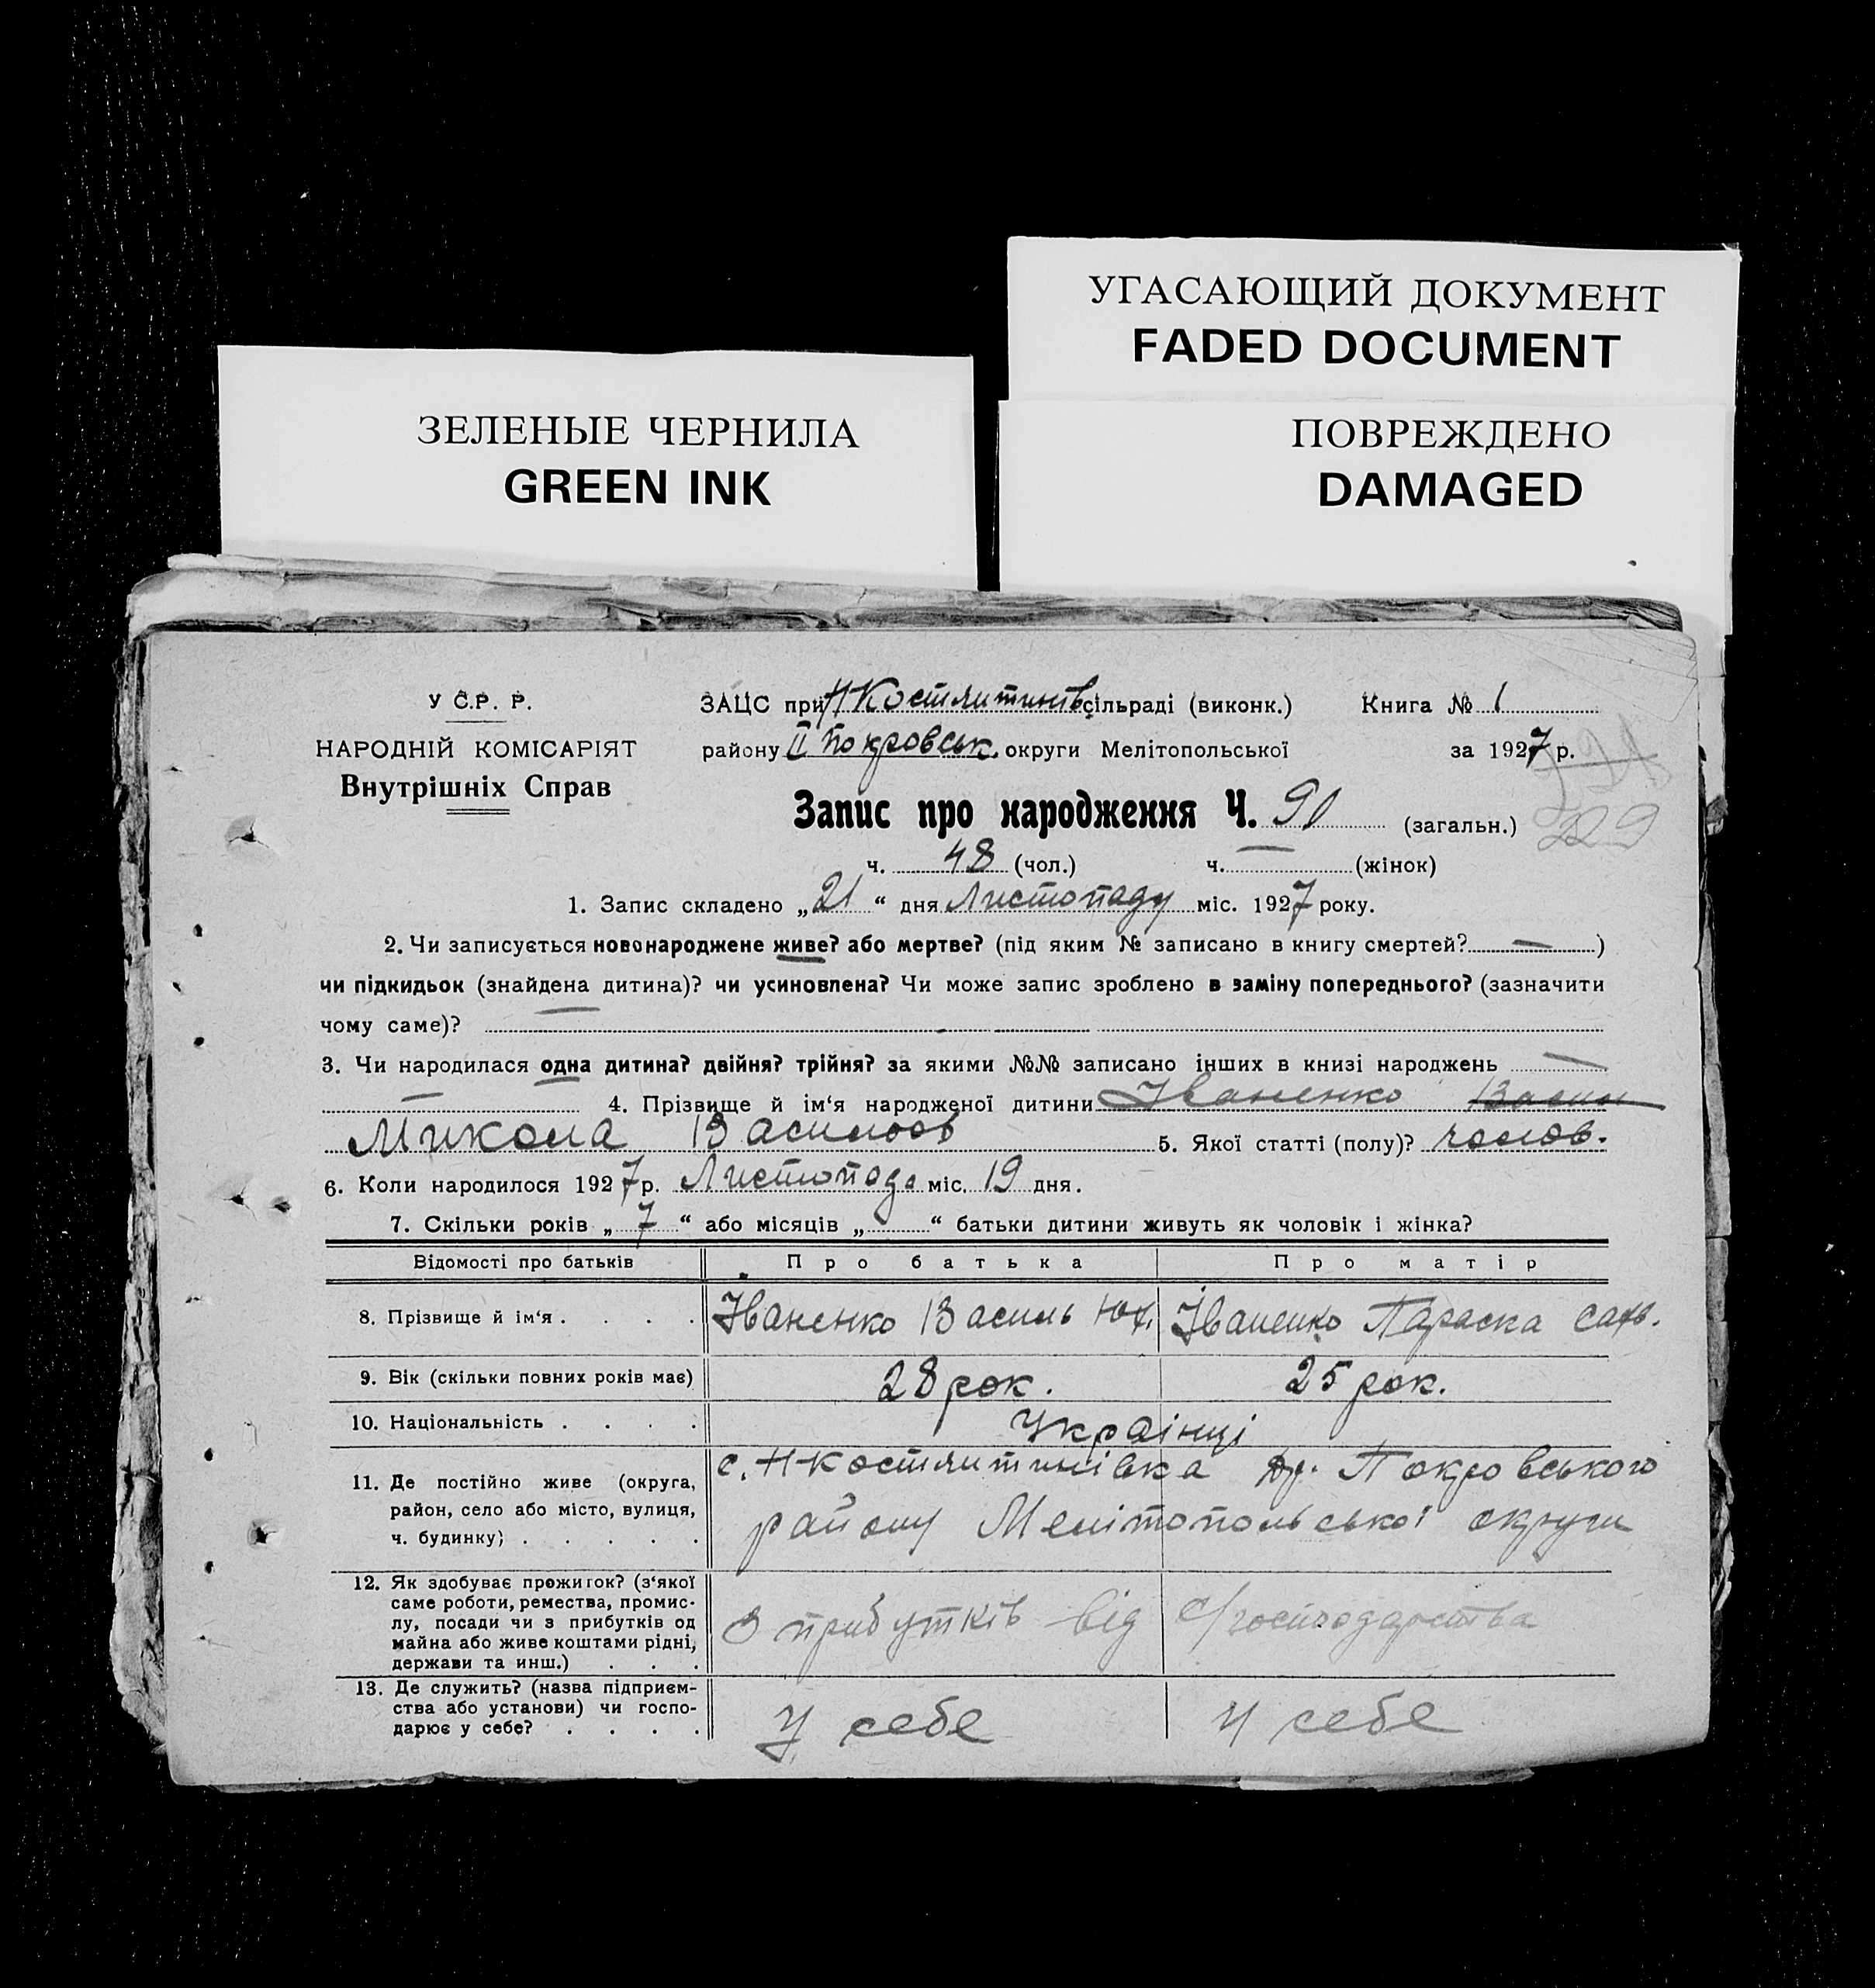 УГАСАЮЩИЙ ДОКУМЕНТ
FADED DOCUMENT
ЗЕЛЕНЫЕ ЧЕРНИЛА
GREEN INK
ПОВРЕЖДЕНО
DAMAGED
У С.Р. Р.
НАРОДНІЙ КОМІСАРІЯТ
Внутрішніх Справ
ЗАЦС при Н Костянтинів сільраді (виконк.) Книга № 1
району П Покровськ. округи Мелітопольської за 1927 р.
Запис про народження Ч. 91 (загальн.)
229
ч. 48 (чол.) ч. — (жінок)
1. Запис складено „21“ дня Листопаду міс. 1927 року.
2. Чи записується новонароджене живе? або мертве? (під яким № записано в книгу смертей? — )
чи підкидьок (знайдена дитина)? чи усиновлена? Чи може запис зроблено в заміну попереднього? (зазначити
чому саме)?
3. Чи народилася одна дитина? двійня? трійня? за якими №№ записано інших в книзі народжень —
— 4. Прізвище й ім‘я народженої дитини Іваненко
Микола Васильов 5. Якої статті (полу)? чолов.
6. Коли народилося 1927 р. Листопада міс. 19 дня.
7. Скільки років „7“ або місяців „ “ батьки дитини живуть як чоловік і жінка?
Відомості про батьків Про батька Про матір
8. Прізвище й ім‘я . . . . Іваненко Василь Юх. Іваненко Параска Сав.
9. Вік (скільки повних років має) 28 рок. 25 рок.
10. Національність . . . . Украінці
11. Де постійно живе (округа,
район, село або місто, вулиця,
ч. будинку) . . . . .
с. Н Костянтинівка Покровського
району Мелітопольської округи
12. Як здобуває прожиток? (з‘якої
саме роботи, ремества, промис-
лу, посади чи з прибутків од
майна або живе коштами рідні,
держави та инш.) . . .
З прибутків від с/господарства
13. Де служить? (назва підприєм-
ства або установи) чи госпо-
дарює у себе? . . . .
У себе У себе